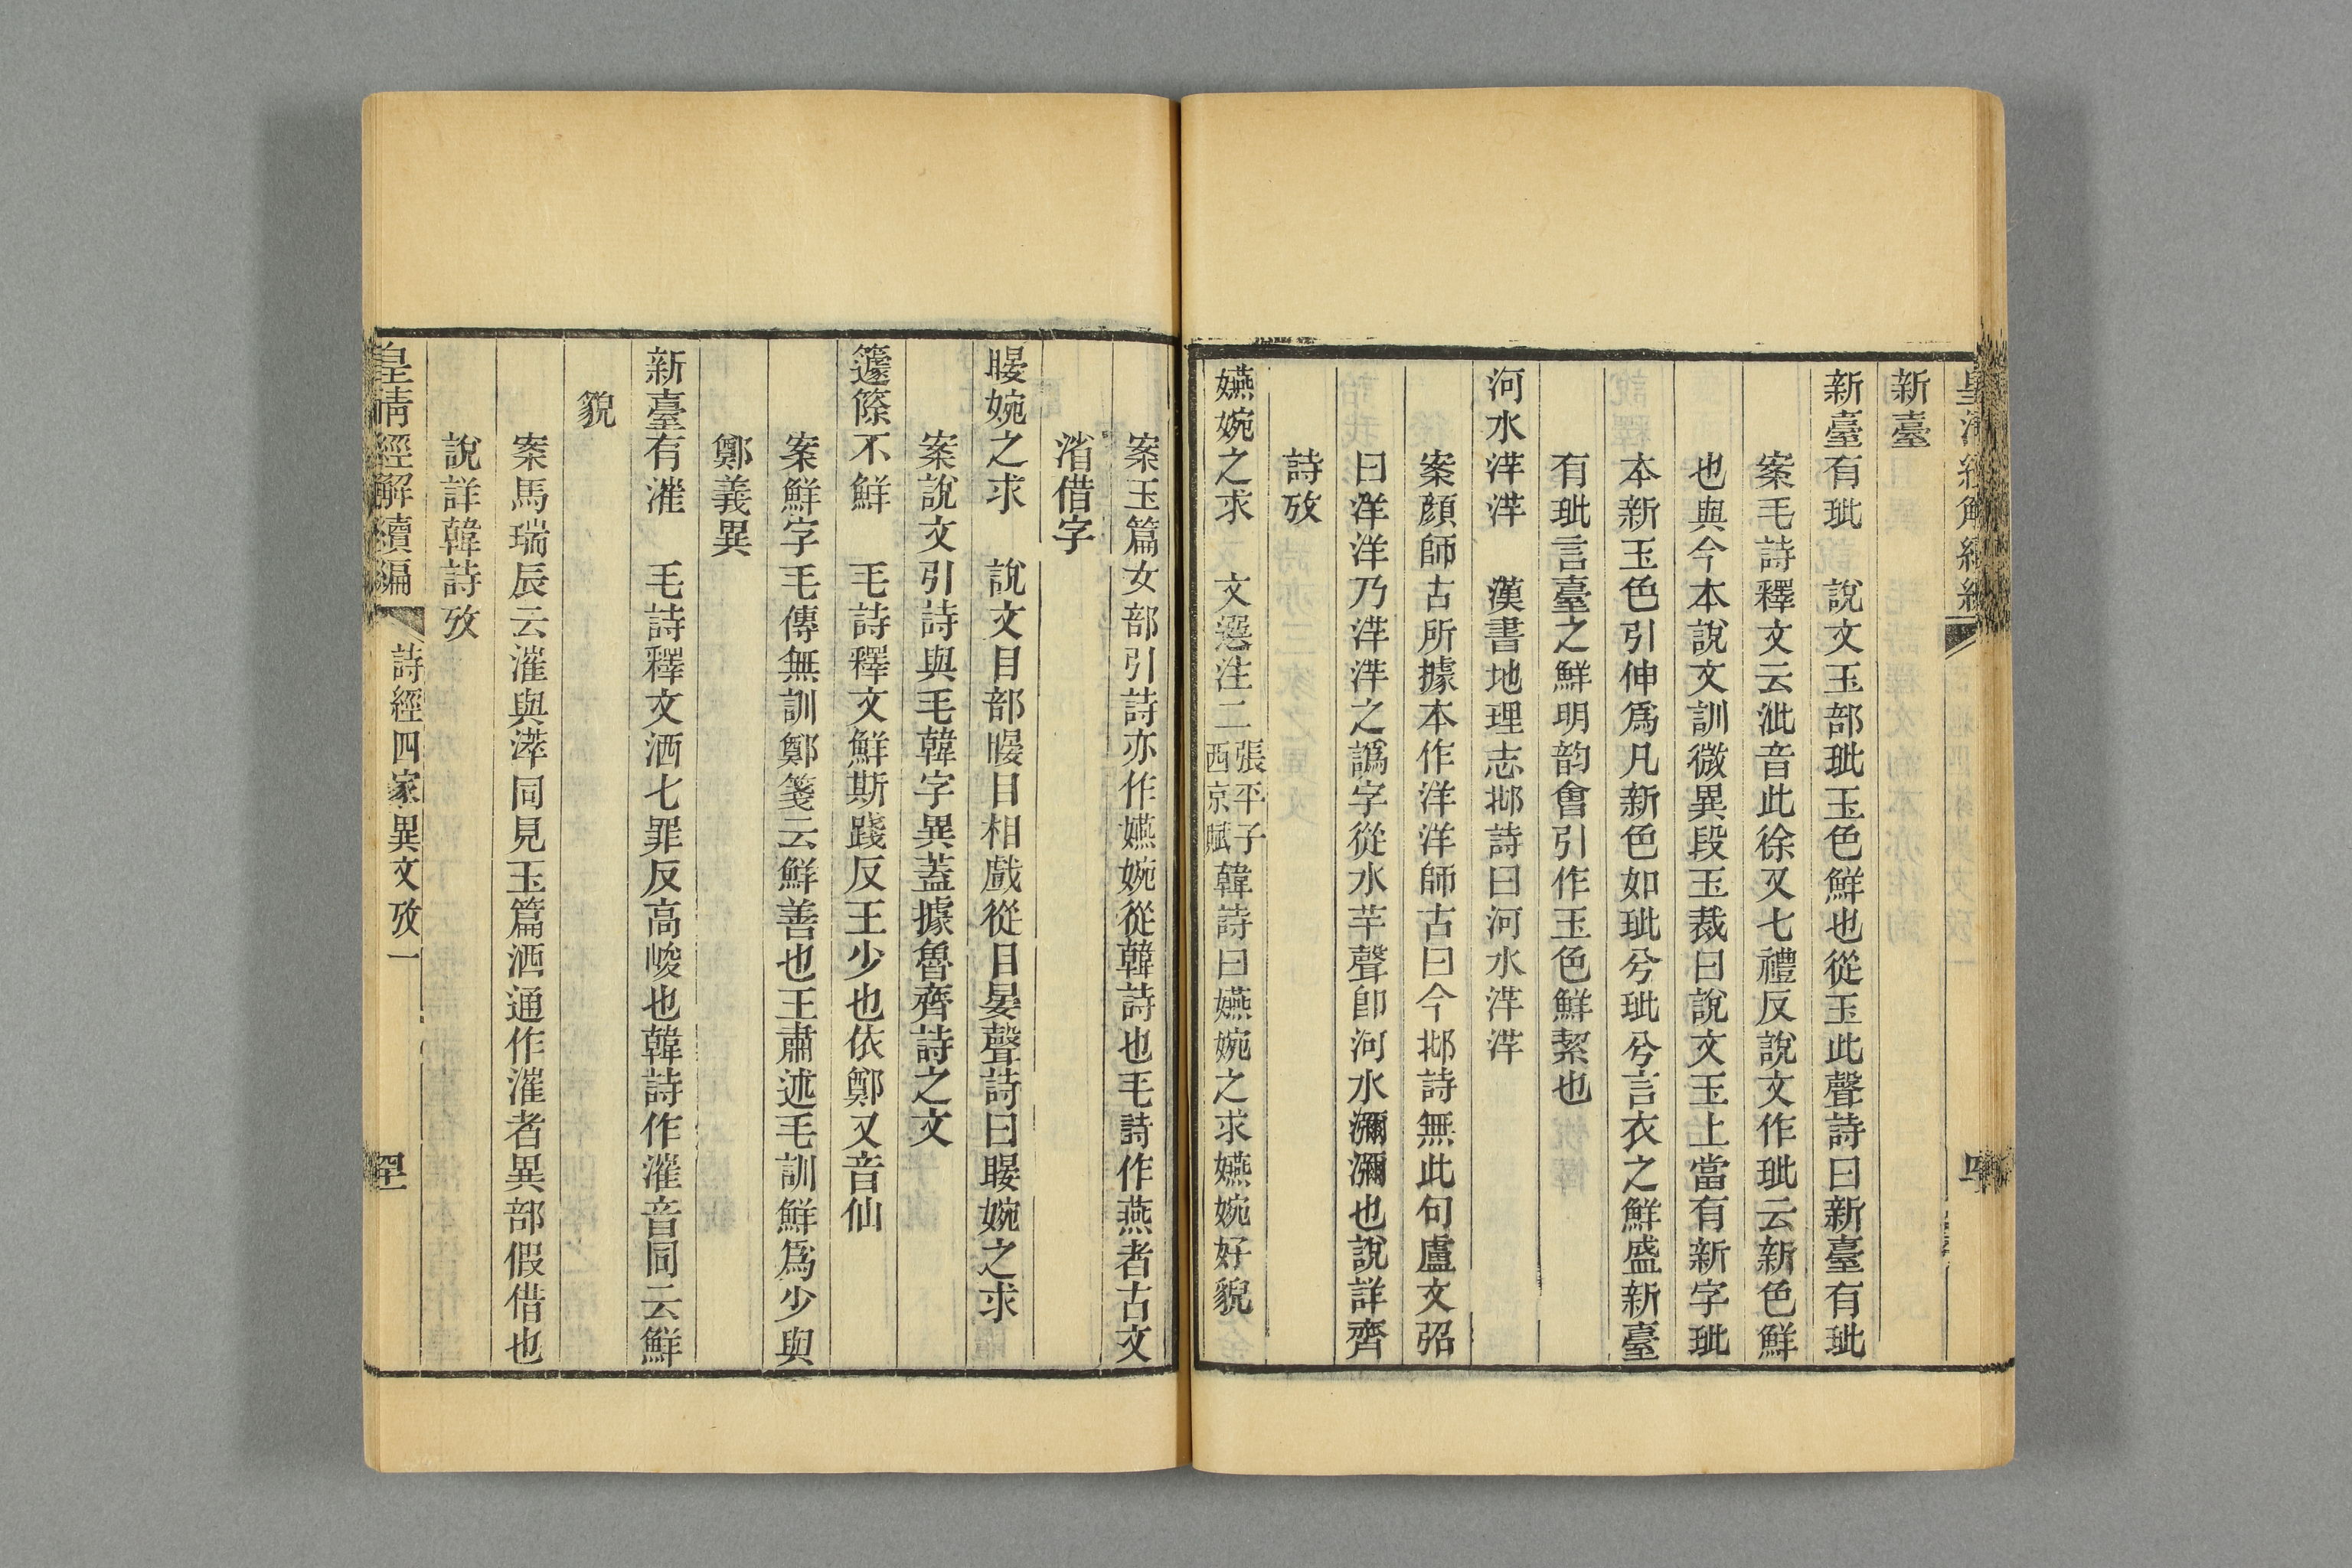 新臺
新臺有玼　說文玉部玼玉色鮮也從玉此聲詩曰新臺有玼
案毛詩釋文云泚音此徐又七禮反說文作玼云新色鮮
也與今本說文訓微異段玉裁曰說文玉上當有新字玼
本新玉色引伸爲凡新色如玼兮玼兮言衣之鮮盛新臺
有玼言臺之鮮明韵會引作玉色鮮絜也
河水洋洋　漢書地理志邶詩曰河水洋洋
案顏師古所據本作洋洋師古曰今邶詩無此句盧文弨
曰洋洋乃渳渳之譌字從水芊聲卽河水瀰瀰也說詳齊
詩攷
嬿婉之求　文選注二張平子西京賦韓詩曰嬿婉之求嬿婉好貌
案玉篇女部引詩亦作嬿婉從韓詩也毛詩作燕者古文
渻借字
暥婉之求　說文目部暥目相戲從目晏聲詩曰暥婉之求
案說文引詩與毛韓字異蓋據魯齊詩之文
籧篨不鮮　毛詩釋文鮮斯踐反王少也依鄭又音仙
案鮮字毛傳無訓鄭箋云鮮善也王肅述毛訓鮮爲少與
鄭義異
新臺有漼　毛詩釋文洒七罪反高峻也韓詩作漼音同云鮮
貌
案馬瑞辰云漼與滜同見玉篇洒通作漼者異部假借也
說詳韓詩攷
皇清經解續編　詩經四家異文攷一